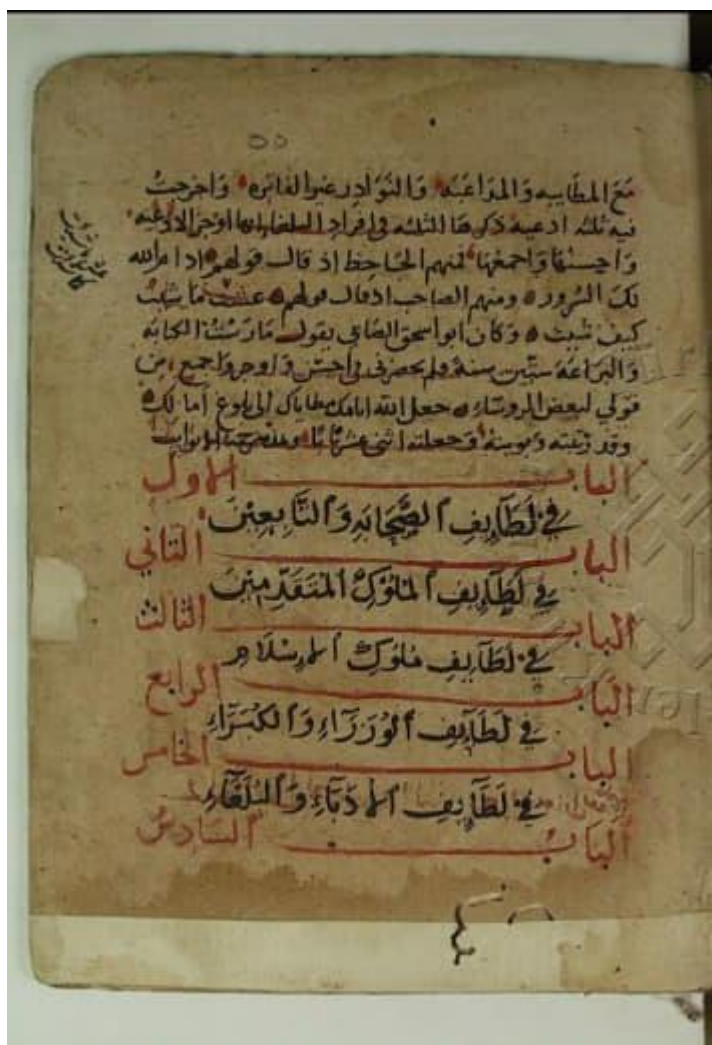 ٥٥
مع المطايبه والمداعبه والنوادر غير الفاتره واخرجت
فيه ثلثه ادعيه ذكرها الثلثه في افراد البلغا انها اوجز الادعيه
واحسنها واجمعها فمنهم الجاحظ اذ قال قولهم ادام الله
لك السرور ومنهم الصاحب اذ قال قولهم عشت ما شئت
كيف شئت وكان ابو اسحق الصابي يقول مارست الكتابه
والبراعة ستين سنة فلم يحضرني احسن واوجز واجمع من
قولي لبعض الروساء جعل الله ايامك مطاياك الى بلوغ امالك
وقد رتبته وبوبته وجعلته اثنى عشر بابا وهذه الابواب
الباب الاول
في لطايف الصحابه والتابعين
الباب الثاني
في لطايف الملوك المتقدمين
الباب الثالث
في لطايف ملوك الاسلام
الباب الرابع
في لطايف الوزراء والكبراء
الباب الخامس
في لطايف الادباء والبلغاء
الباب السادس